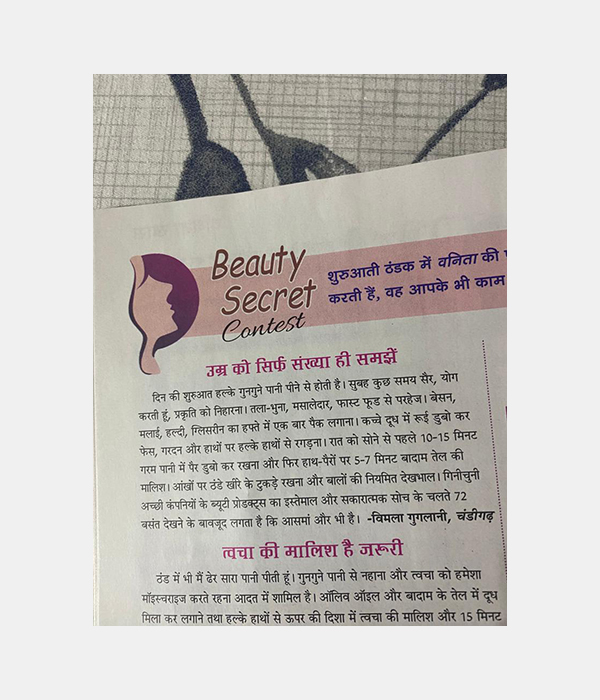 Beauty
Secret
Contest
शुरुआती ठंडक में वनिता की
करती हैं, वह आपके भी काम
उम्र को सिर्फ संख्या ही समझें
दिन की शुरुआत हल्के गुनगुने पानी पीने से होती है। सुबह कुछ समय सैर, योग
करती हूं, प्रकृति को निहारना। तला-भुना, मसालेदार, फास्ट फूड से परहेज। बेसन,
मलाई, हल्दी, ग्लिसरीन का हफ्ते में एक बार पैक लगाना। कच्चे दूध में रूई डुबो कर
फेस, गरदन और हाथों पर हल्के हाथों से रगड़ना। रात को सोने से पहले 10-15 मिनट
गरम पानी में पैर डुबो कर रखना और फिर हाथ-पैरों पर 5-7 मिनट बादाम तेल की
मालिश। आंखों पर ठंडे खीरे के टुकड़े रखना और बालों की नियमित देखभाल। गिनीचुनी
अच्छी कंपनियों के ब्यूटी प्रोडक्ट्स का इस्तेमाल और सकारात्मक सोच के चलते 72
बसंत देखने के बावजूद लगता है कि आसमां और भी है। -विमला गुगलानी, चंडीगढ़
त्वचा की मालिश है जरूरी
ठंड में भी मैं ढेर सारा पानी पीती हूं। गुनगुने पानी से नहाना और त्वचा को हमेशा
मॉइस्चराइज करते रहना आदत में शामिल है। ऑलिव ऑइल और बादाम के तेल में दूध
मिला कर लगाने तथा हल्के हाथों से ऊपर की दिशा में त्वचा की मालिश और 15 मिनट